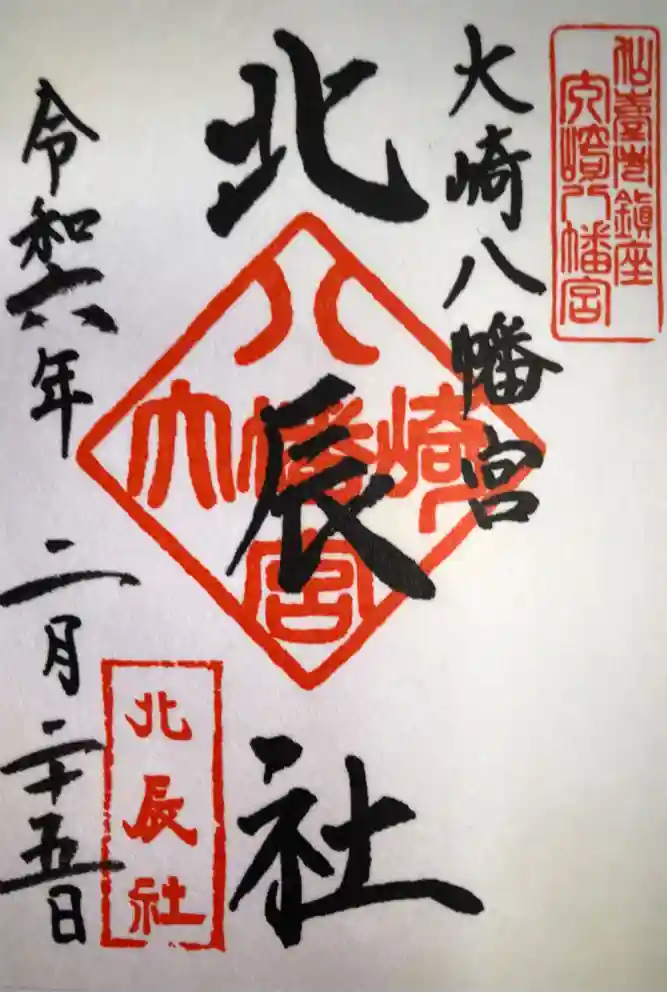 仙臺市鎮座
大崎八幡宮
大崎八幡宮
北辰社
八
大幡崎
宮
北辰社
令和六年
二月二十五日